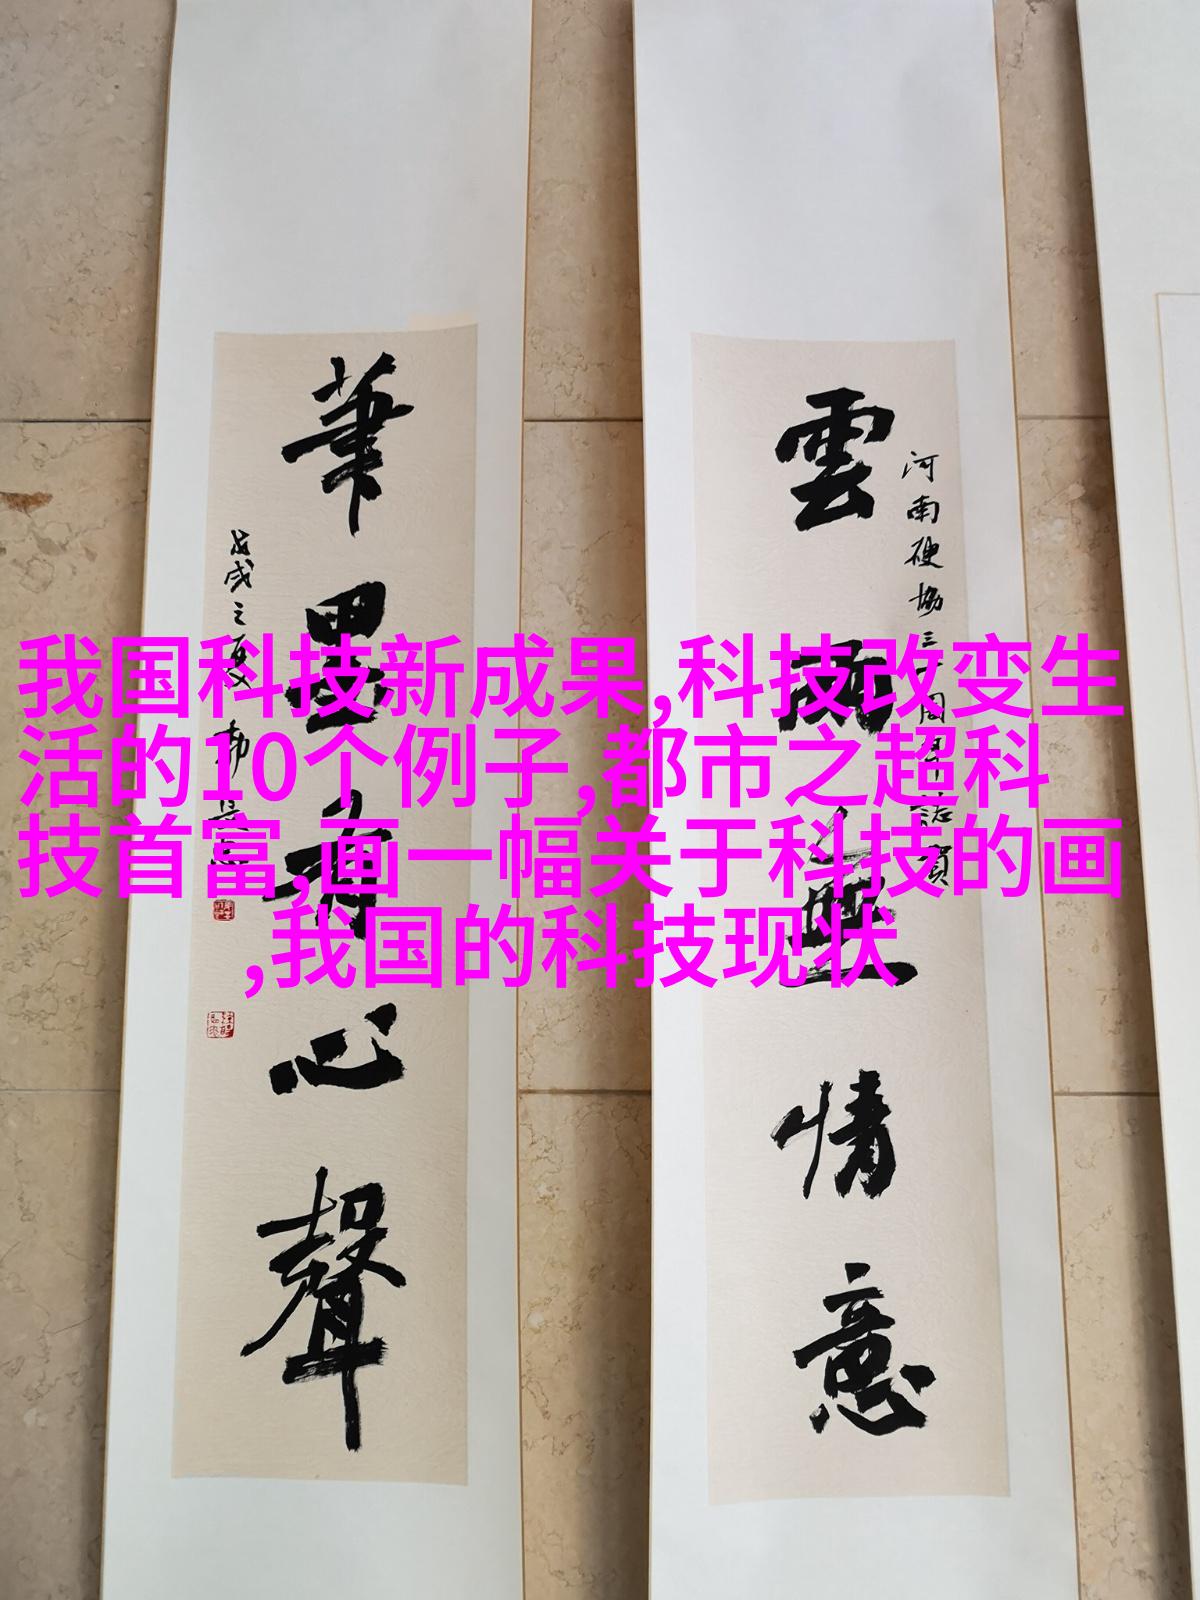 我国科技新成果,科技改变生
活的10个例子,都市之超科
技首富,画一幅关于科技的画
,我国的科技现状
雲雨無情意
河南硬協三十周年誌賀
筆墨有心聲
戊戌之夏